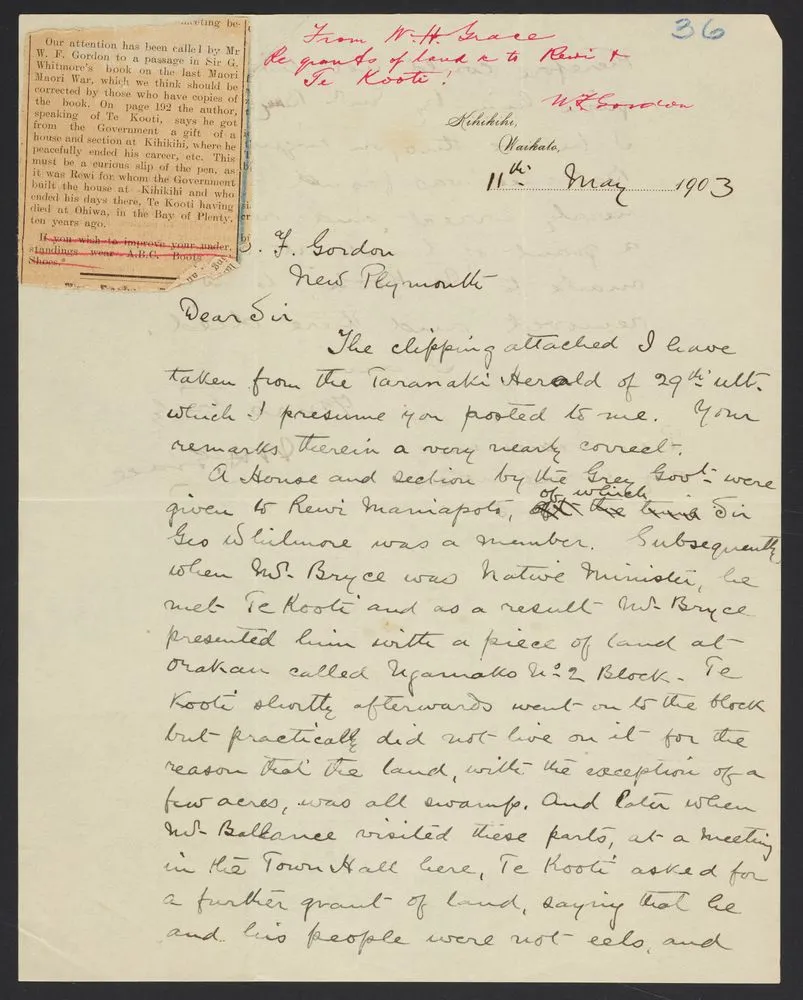 36
From W. H. Grace
Re grants of land &c to Rewi &
Te Kooti!
W. F. Gordon
Our attention has been called by Mr
W. F. Gordon to a passage in Sir G.
Whitmore's book on the last Maori
Maori War, which we think should be
corrected by those who have copies of
the book. On page 192 the author,
speaking of Te Kooti, says he got
from the Government a gift of a
house and section at Kihikihi, where he
peacefully ended his career, etc. This
must be a curious slip of the pen, as
it was Rewi for whom the Government
built the house at Kihikihi and who
ended his days there, Te Kooti having
died at Ohiwa, in the Bay of Plenty,
ten years ago.
If you wish to improve your under.
standings wear A.B.C. Boots
Shoes.*
Kihikihi,
Waikato,
11th May 1903
F. Gordon
New Plymouth
Dear Sir
The clipping attached I have
taken from the Taranaki Herald of 29th ult.
which I presume you posted to me. Your
remarks therein a very nearly correct.
A House and section by the Grey Govt. were
given to Rewi Maniapoto, of which Sir
Geo Whitmore was a member. Subsequently
when Mr. Bryce was Native Minister, he
met Te Kooti and as a result Mr Bryce
presented him with a piece of land at
Orakau called Ngamako No 2 Block. Te
Kooti shortly afterwards went on to the block
but practically did not live on it for the
reason that the land, with the exception of a
few acres, was all swamp. And later when
Mr Ballance visited these parts, at a meeting
in the Town Hall here, Te Kooti asked for
a further grant of land, saying that he
and his people were not eels, and